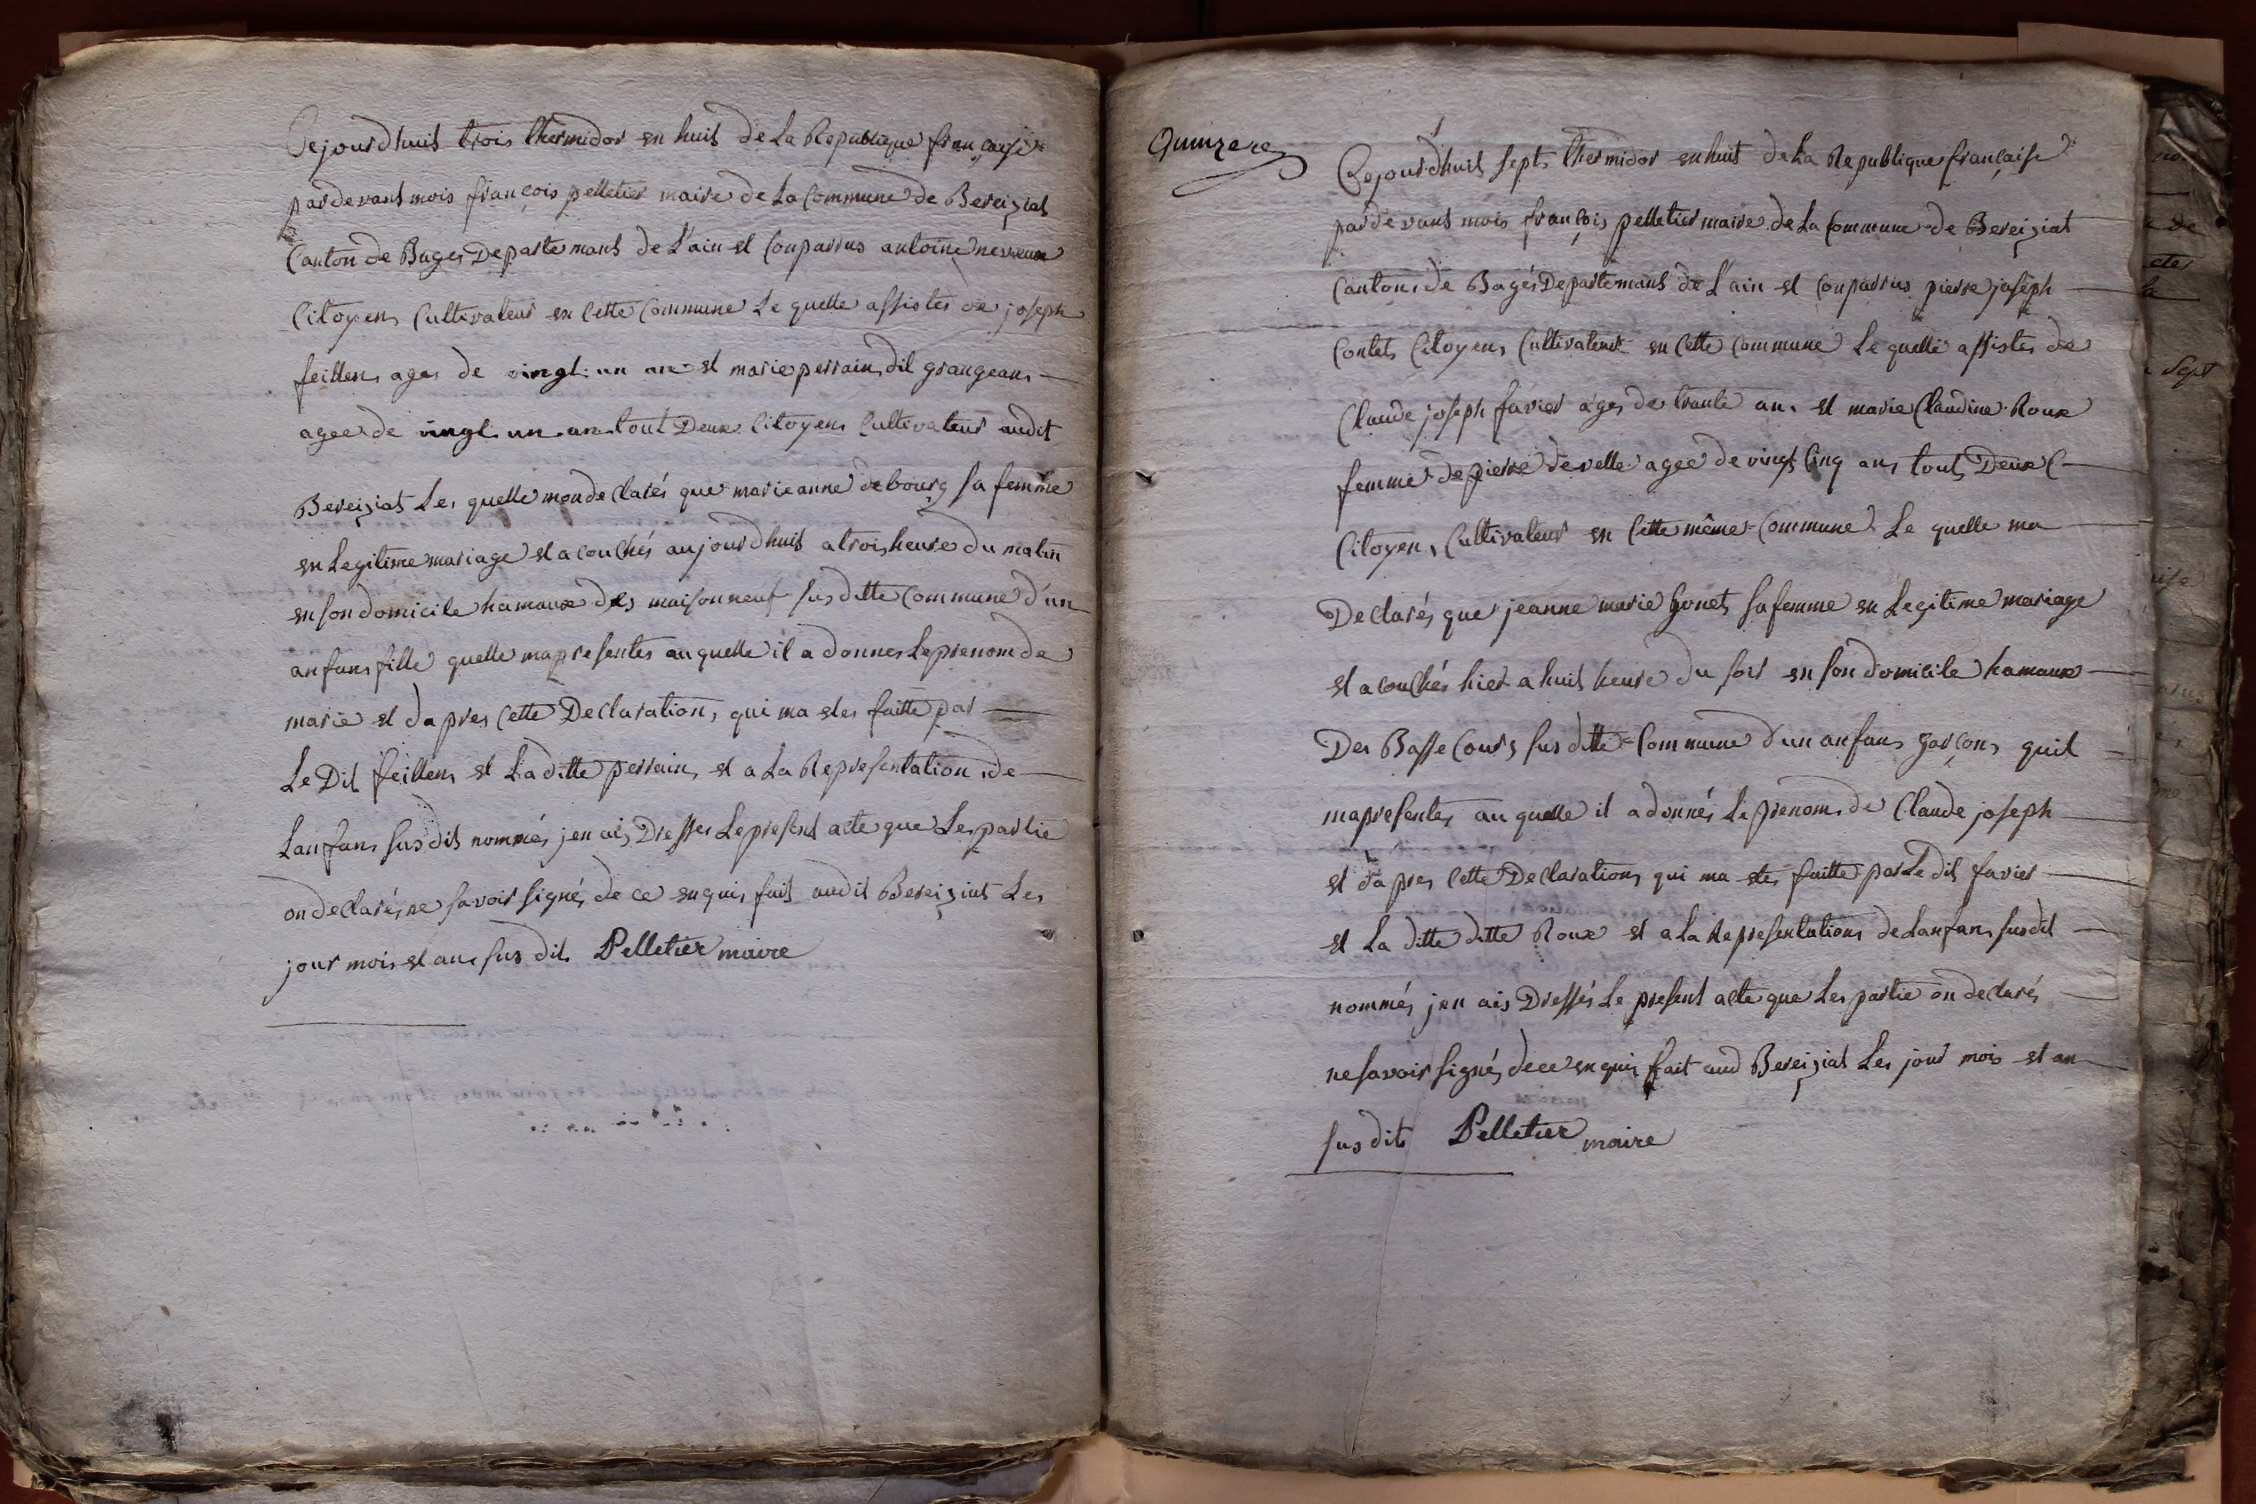 Cejourdhuit trois thermidor en huit de La Republique francaise
pardevant mois françois pelletier maire de La Commune de Bereiziat
Canton de Bages Departemant de L'ain est Conparrus antoine nevreux
Citoyens Cultivateur en Cette Commune Le quelle assistes de joseph
feillens ages de vingt un an et marie perrain dit grangeans
agee de vingt un ans tout Deux Citoyens Cultivateur audit
Bereiziat Les quelle mon declarés que marieanne debourg sa femme
en Legitime mariage est acouchés aujourdhuit a trois heure Du matin
en son domicile hamaux des maison neuf susditte Commune d'un
anfans fille quelle ma presentes au quelle il a donnes Le prenom de
marie et dapres Cette Declaration, qui ma etes faitte par
Le Dit feillens et La ditte perrain, et a La Representation de
Lanfans susdit nommés jen ais Dresses Le present acte que Les partie
on declarés ne savoir signés de ce enquis fait audit Bereiziat Les
jour mois et ans sus dit Pelletier maire
Quinzere
Cejourdhuit sept thermidor en huit de La Republique française
pardevant mois françois pelletier maire de La Commune de Bereiziat
Cantons de Bagés Departemant de L'ain est Conparrus pierre joseph
Contet Citoyens Cultivateur en Cette Commune Le quelle assistes de
Claude joseph favier ages de trante ans et marie Claudine Roux
femme de pierre develle agee de vingt Cinq ans tout Deux C
Citoyens Cultivateur en Cette même Commune Le quelle ma
Declarés que jeanne marie Gonet sa femme en Legitime mariage
est acouchés hier a huit heure du soir en son domicile hamaux
Des Basse Cours sus ditte Commune d'un anfans garçons quil
mapresentes au quelle il a donnés Le prenom de Claude joseph
et dapres Cette Declarations qui ma etes faitte par Le dit favier
et La ditte ditte Roux et a La Representations de Lanfans susdit
nommés jen ais Dressés Le present acte que Les partie on declarés
ne savoir signés de ce enquis fait aud Bereiziat Les jour mois et an
sus dit Pelletier maire